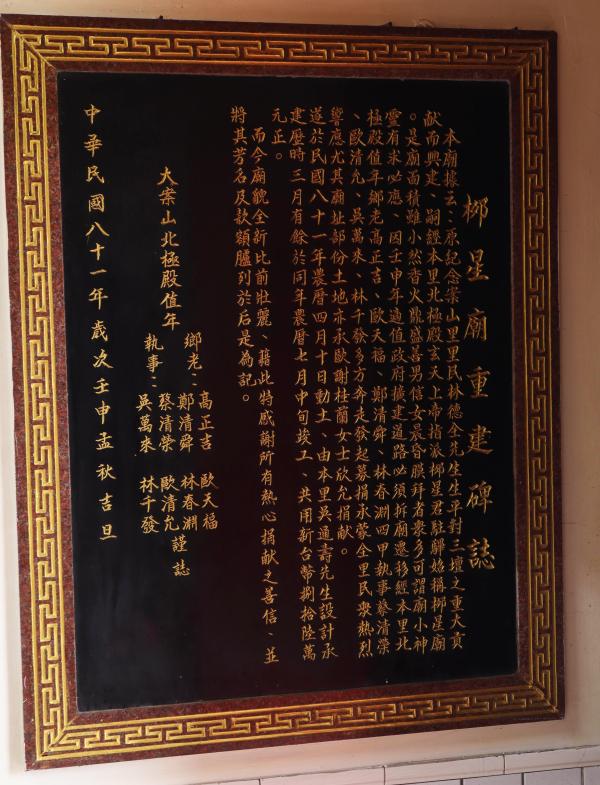 梛星廟重建碑誌
本廟據云：原紀念柴山里里民林德全先生生平對三壇之重大貢
獻而興建、嗣經本里北極殿玄天上帝指派梛星君駐驊始稱梛星廟
。是廟面積雖小然香火鼎盛善男信女晨昏膜拜者衆多可謂廟小神
靈有求必應、因壬申年適值政府擴建道路必須拆廟遷移經本里北
極殿值年鄉老高正吉、歐天福、鄭清舜、林春渊四甲執事蔡清榮
、歐清允、吳萬來、林千發多方奔走發起募捐承蒙全里民衆熱烈
響應尤其廟址部份土地亦承歐謝杜蘭女士欣允捐献。
遂於民國八十一年農曆四月十日動土、由本里吳進壽先生設計承
建歷時三月有餘於同年農曆七月中旬竣工、共用新台幣捌拾陸萬
元正。
而今廟貌全新比前壯麗、藉此特感謝所有熱心捐献之善信、並
將其芳名及款額臚列於后是為記。
大柴山北極殿值年
鄉老：高正吉 歐天福
鄭清舜 林春渊
執事：蔡清榮 歐清允 謹誌
吳萬來 林千發
中華民國八十一年歲次壬申孟秋吉旦